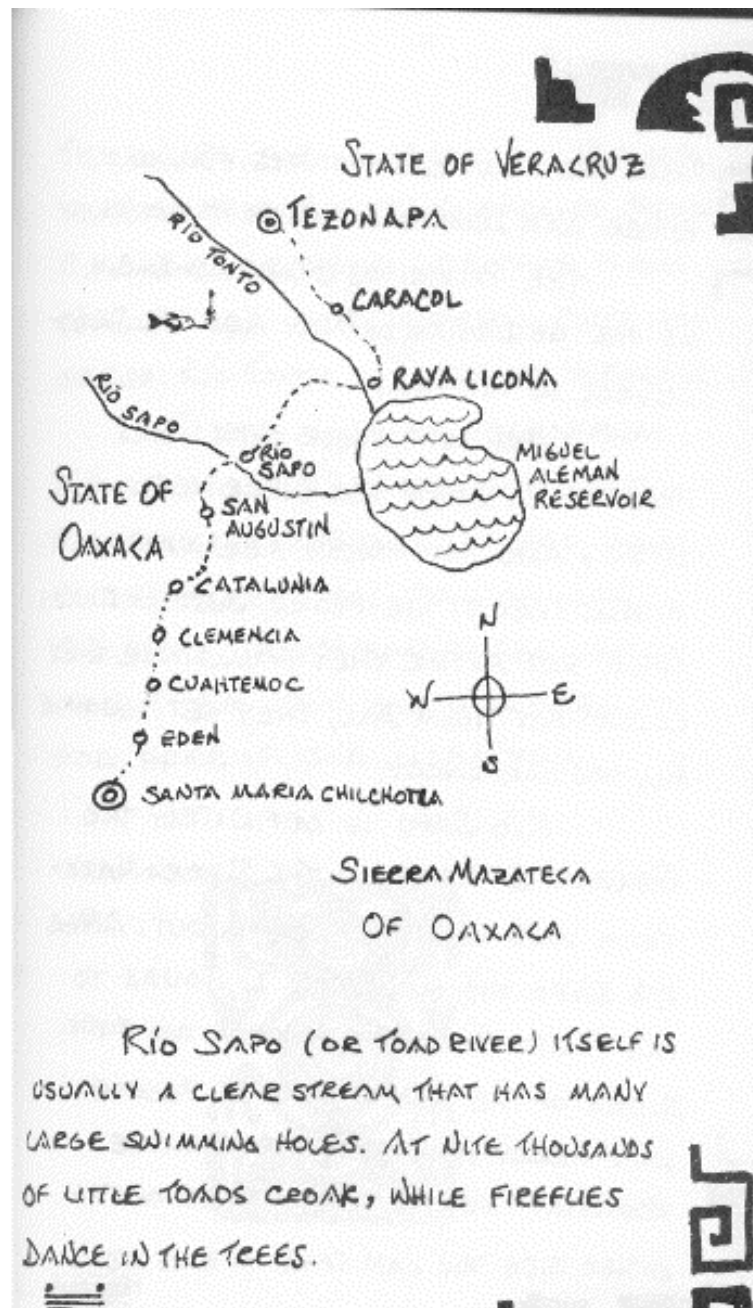 STATE OF VERACRUZ
TEZONAPA
RÍO TONTO
CARACOL
RAYA LICONA
RÍO SAPO
RÍO
SAPO
MIGUEL
ALEMAN
RESERVOIR
STATE OF
OAXACA
SAN
AUGUSTIN
CATALUNIA
CLEMENCIA
N
CUAHTEMOC
W
E
EDEN
S
SANTA MARIA CHILCHOTLA
SIERRA MAZATECA
OF OAXACA
RÍO SAPO (OR TOAD RIVER) ITSELF IS
USUALLY A CLEAR STREAM THAT HAS MANY
LARGE SWIMMING HOLES. AT NITE THOUSANDS
OF LITTLE TOADS CROAK, WHILE FIREFLIES
DANCE IN THE TREES.